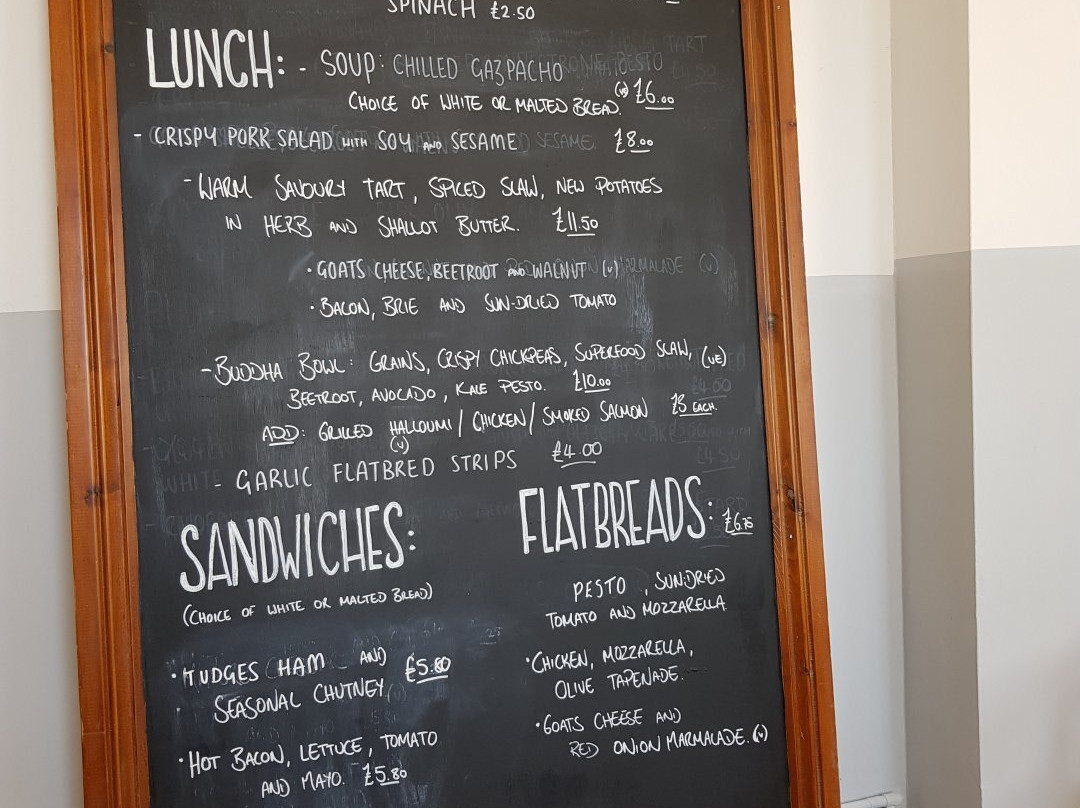 SPINACH £2.50
LUNCH: - SOUP: CHILLED GAZPACHO
CHOICE OF WHITE OR MALTED BREAD. (VE) £6.00
- CRISPY PORK SALAD WITH SOY AND SESAME £8.00
- WARM SAVOURY TART, SPICED SLAW, NEW POTATOES
IN HERB AND SHALLOT BUTTER. £11.50
• GOATS CHEESE, BEETROOT AND WALNUT (V)
• BACON, BRIE AND SUN-DRIED TOMATO
- BUDDHA BOWL: GRAINS, CRISPY CHICKPEAS, SUPERFOOD SLAW, (VE)
BEETROOT, AVOCADO, KALE PESTO. £10.00
ADD: GRILLED HALLOUMI / CHICKEN / SMOKED SALMON £3 EACH.
(V)
- GARLIC FLATBRED STRIPS £4.00
SANDWICHES:
(CHOICE OF WHITE OR MALTED BREAD)
• TUDGES HAM AND £5.80
SEASONAL CHUTNEY
• HOT BACON, LETTUCE, TOMATO
AND MAYO. £5.80
FLATBREADS: £6.75
PESTO, SUNDRIED
TOMATO AND MOZZARELLA
• CHICKEN, MOZZARELLA,
OLIVE TAPENADE.
• GOATS CHEESE AND
RED ONION MARMALADE. (V)